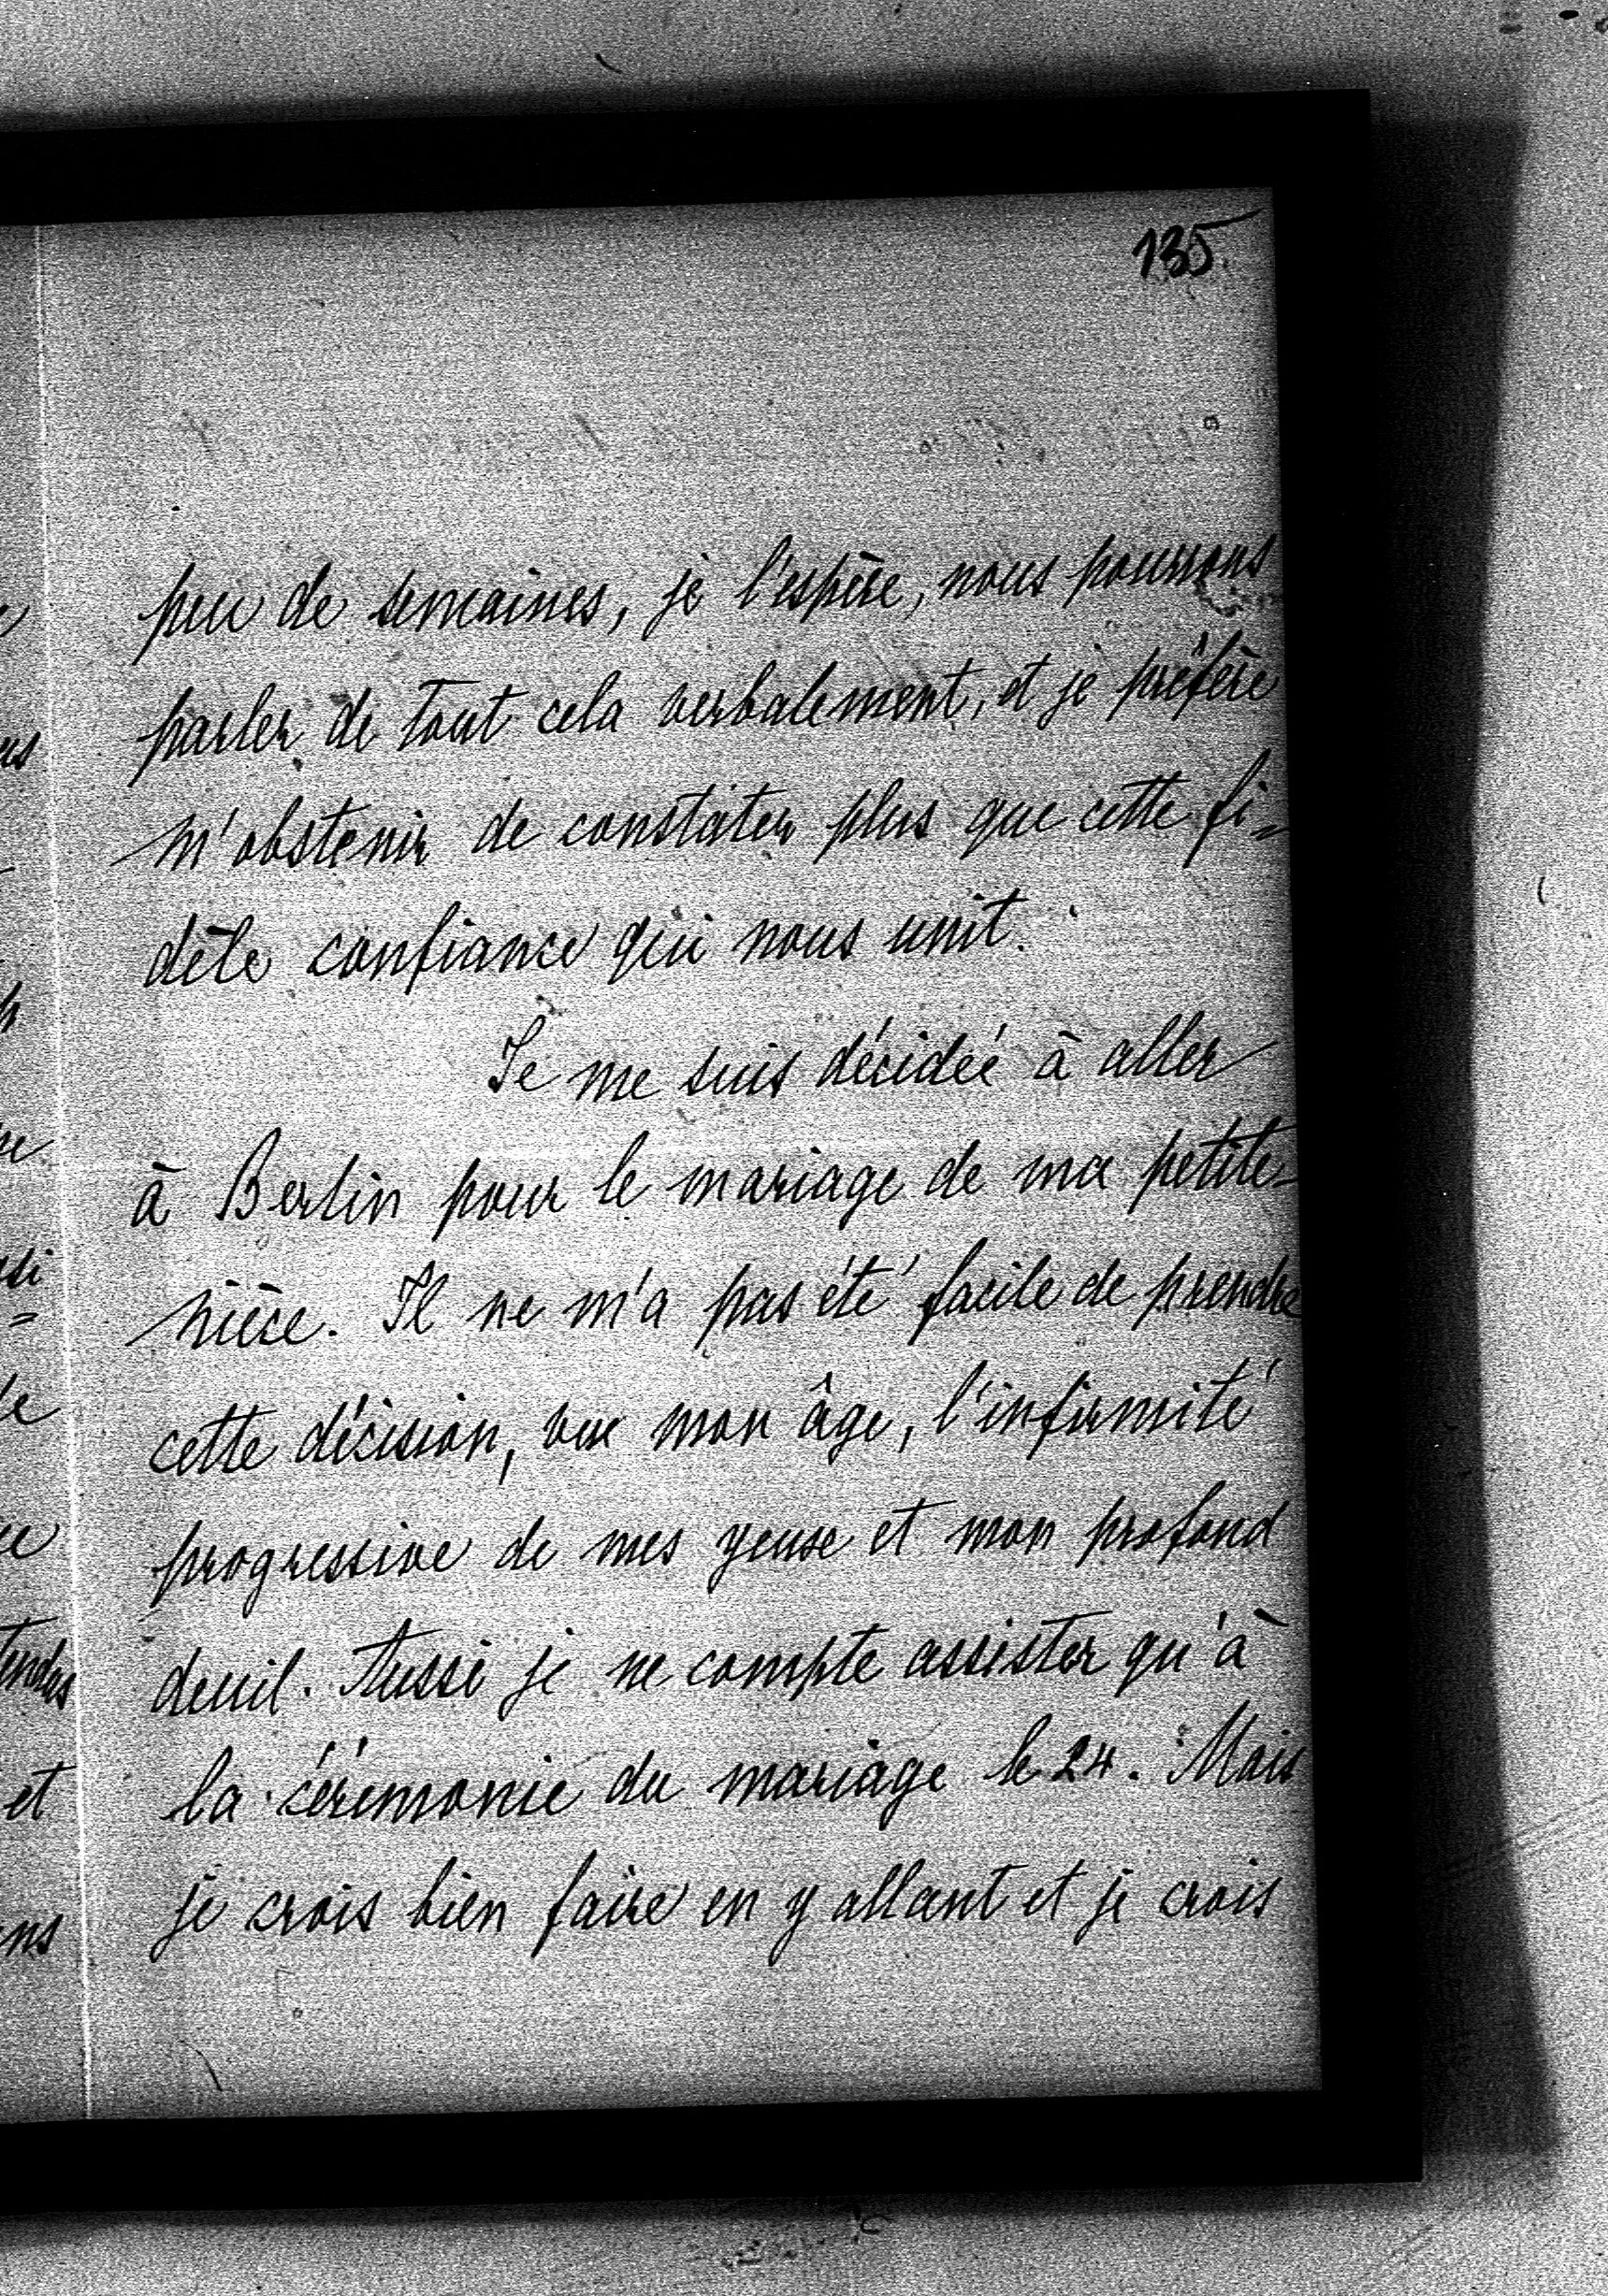 135.
peu de semaines, je l'espère, nous pourrons
parler de tout cela verbalement, et je préfère
m'obstenir de constater plus que cette fi=
dèle confiance qui nous unit.
Je me suis décidée à aller
à Berlin pour le mariage de ma petite-
nièce. Il ne m'a pas été facile de prendre
cette décision, vu mon âge, l'infirmité
progressive de mes yeux et mon profond
deuil. Aussi je ne compte assister qu'à
la cérémonie du mariage le 24. Mais
je crois bien faire en y allant et je crois